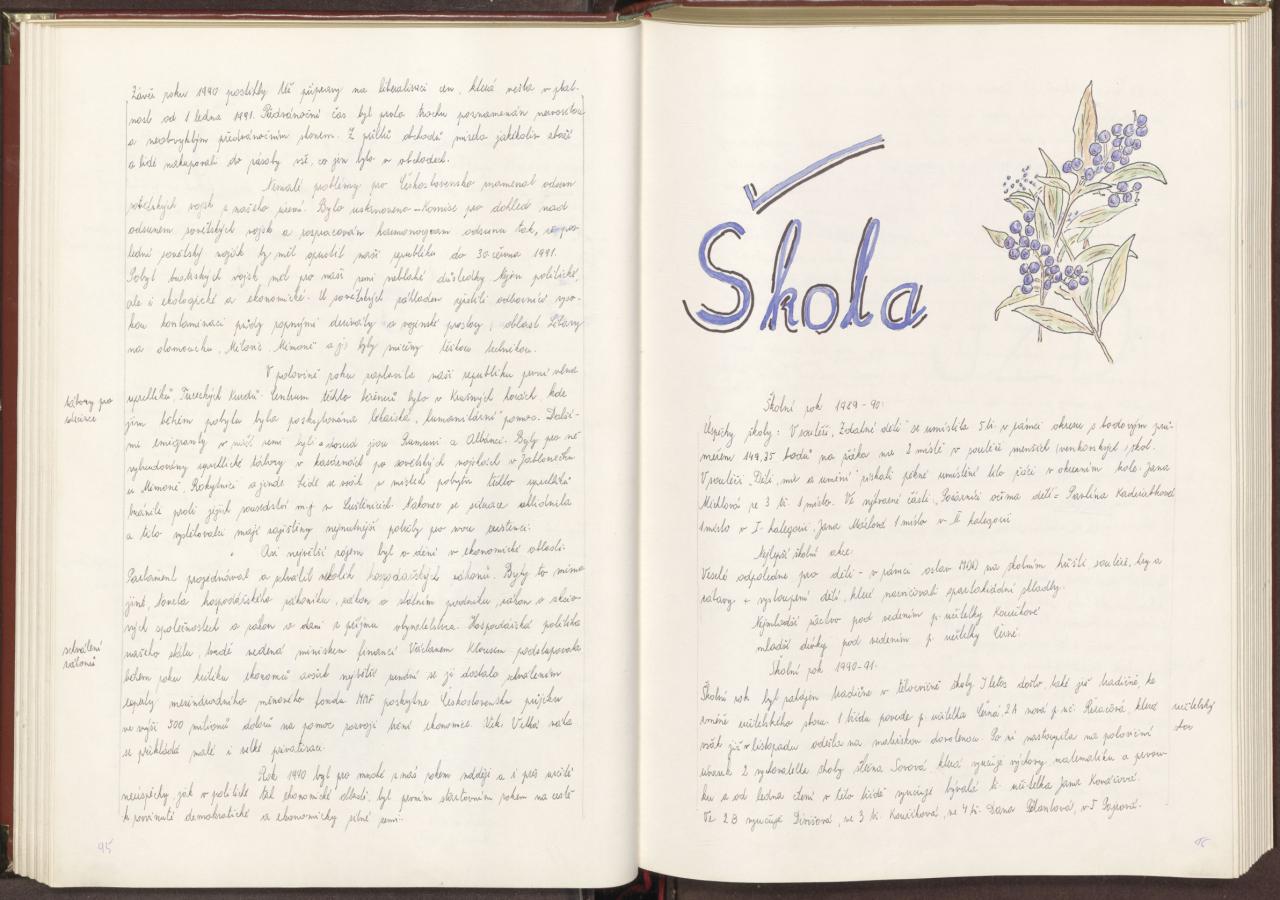 Závěr roku 1990 postihly též přípravy na liberalizaci cen, která vešla v plat-
nost od 1 ledna 1991. Předvánoční čas byl proto trochu poznamenán nervozitou
a neobvyklým předvánočním shonem. Z pultů obchodů mizelo jakékoliv zboží
a lidé nakupovali do zásoby vše, co jen bylo v obchodech.
Nemalé problémy pro Československo znamenal odsun
sovětských vojsk z našeho území. Byla ustanovena Komise pro dohled nad
odsunem sovětských vojsk a vypracován harmonogram odsunu tak, že pos-
lední sovětský voják by měl opustit naši republiku do 30. června 1991.
Pobyt tuctských vojsk měl pro naši zemi neblahé důsledky nejen politické,
ale i ekologické a ekonomické. U sovětských základen zjistili odborníci vyso-
kou kontaminaci půdy ropnými deriváty a vojenské prostory, oblast Libavy
na olomoucku, Milovic, Mimoně a js byly zničeny těžkou technikou.
V polovině roku zaplavila naši republiku první vlna
uprchlíků, Tureckých Kurdů. Centrum těchto běženců bylo v Krušných horách, kde
jim během pobytu byla poskytována lékařská, humanitární pomoc. Další-
mi emigranty v naší zemi byli a dosud jsou Rumuni a Albánci. Byly pro ně
vybudovány uprchlické tábory v kasárnách po sovětských vojácích v Jablonečku
u Mimoně, Rokytnici a jinde. Lidé se však v místech pobytu těchto uprchlíků
bránili proti jejich sousedství např. v Luštěnicích. Nakonec se situace uklidnila
a tito vystěhovalci mají zajištěny nejnutnější potřeby pro svou existenci.
Asi největší zájem byl o dění v ekonomické oblasti.
Parlament projednával a schválil několik hospodářských zákonů. Byly to mimo
jiné, novela hospodářského zákoníku, zákon o státním podniku, zákon o akcio-
vých společnostech a zákon o dani z příjmu obyvatelstva. Hospodářská politika
našeho státu, tvrdě vedená ministrem financí Václavem Klausem podstupovala
během roku kritiku ekonomů avšak největší uznání se jí dostalo schválením
experty mezinárodního měnového fondu MMF poskytne Československu půjčku
ve výši 300 milionů dolarů na pomoc rozvoji tržní ekonomice. Velká váha
se přikládá malé i velké privatizaci.
Rok 1990 byl pro mnohé z nás rokem nadějí a i přes určité
neúspěchy jak v politické tak ekonomické oblasti, byl prvním startovním rokem na cestě
k rozvinuté demokratické a ekonomicky silné zemi.
tábory pro
schválení
zákonů
95
Škola
Školní rok 1989-90:
Úspěchy školy: V soutěži „Zdatné děti" se umístila 5. tř. v rámci okresu s bodovým prů-
měrem 149,35 bodů na žáka na 2 místě v soutěži menších (venkovských) škol.
V soutěži „Děti, mír a umění" získali pěkné umístění tito žáci v okresním kole: Jana
ve 3 tř. 1 místo. Ve výtvarné části „Požárníci očima dětí" Pavlína
1 místo v I. kategorii, Jana 1 místo v II kategorii
Nejlepší školní akce:
Veselé odpoledne pro děti - v rámci oslav MDD na školním hřišti soutěže, hry a
zábavy + vystoupení dětí, které nacvičovali spartakiádní skladby.
Nejmladší žactvo pod vedením p. učitelky Koučkové
mladší dívky pod vedením p. učitelky Černé.
Školní rok 1990-91.
Školní rok byl zahájen tradičně v tělocvičně školy. I letos došlo, také již tradičně, ke
změně učitelského sboru. 1 třídu povede p. učitelka Černá, 2A nová p. uč. Řezáčová, která
však již v listopadu odešla na mateřskou dovolenou. Po ní nastoupila na poloviční
úvazek 2 vychovatelka školy slečna Sovová, která vyučuje výchovy, matematiku a prvou-
ku a od ledna čtení v této třídě vyučuje bývalá tř. učitelka Jana Kovářová.
Ve 2B vyučuje Divišová, ve 3 tř. Koučková, ve 4 tř. Dana v 5
učitelský
sbor